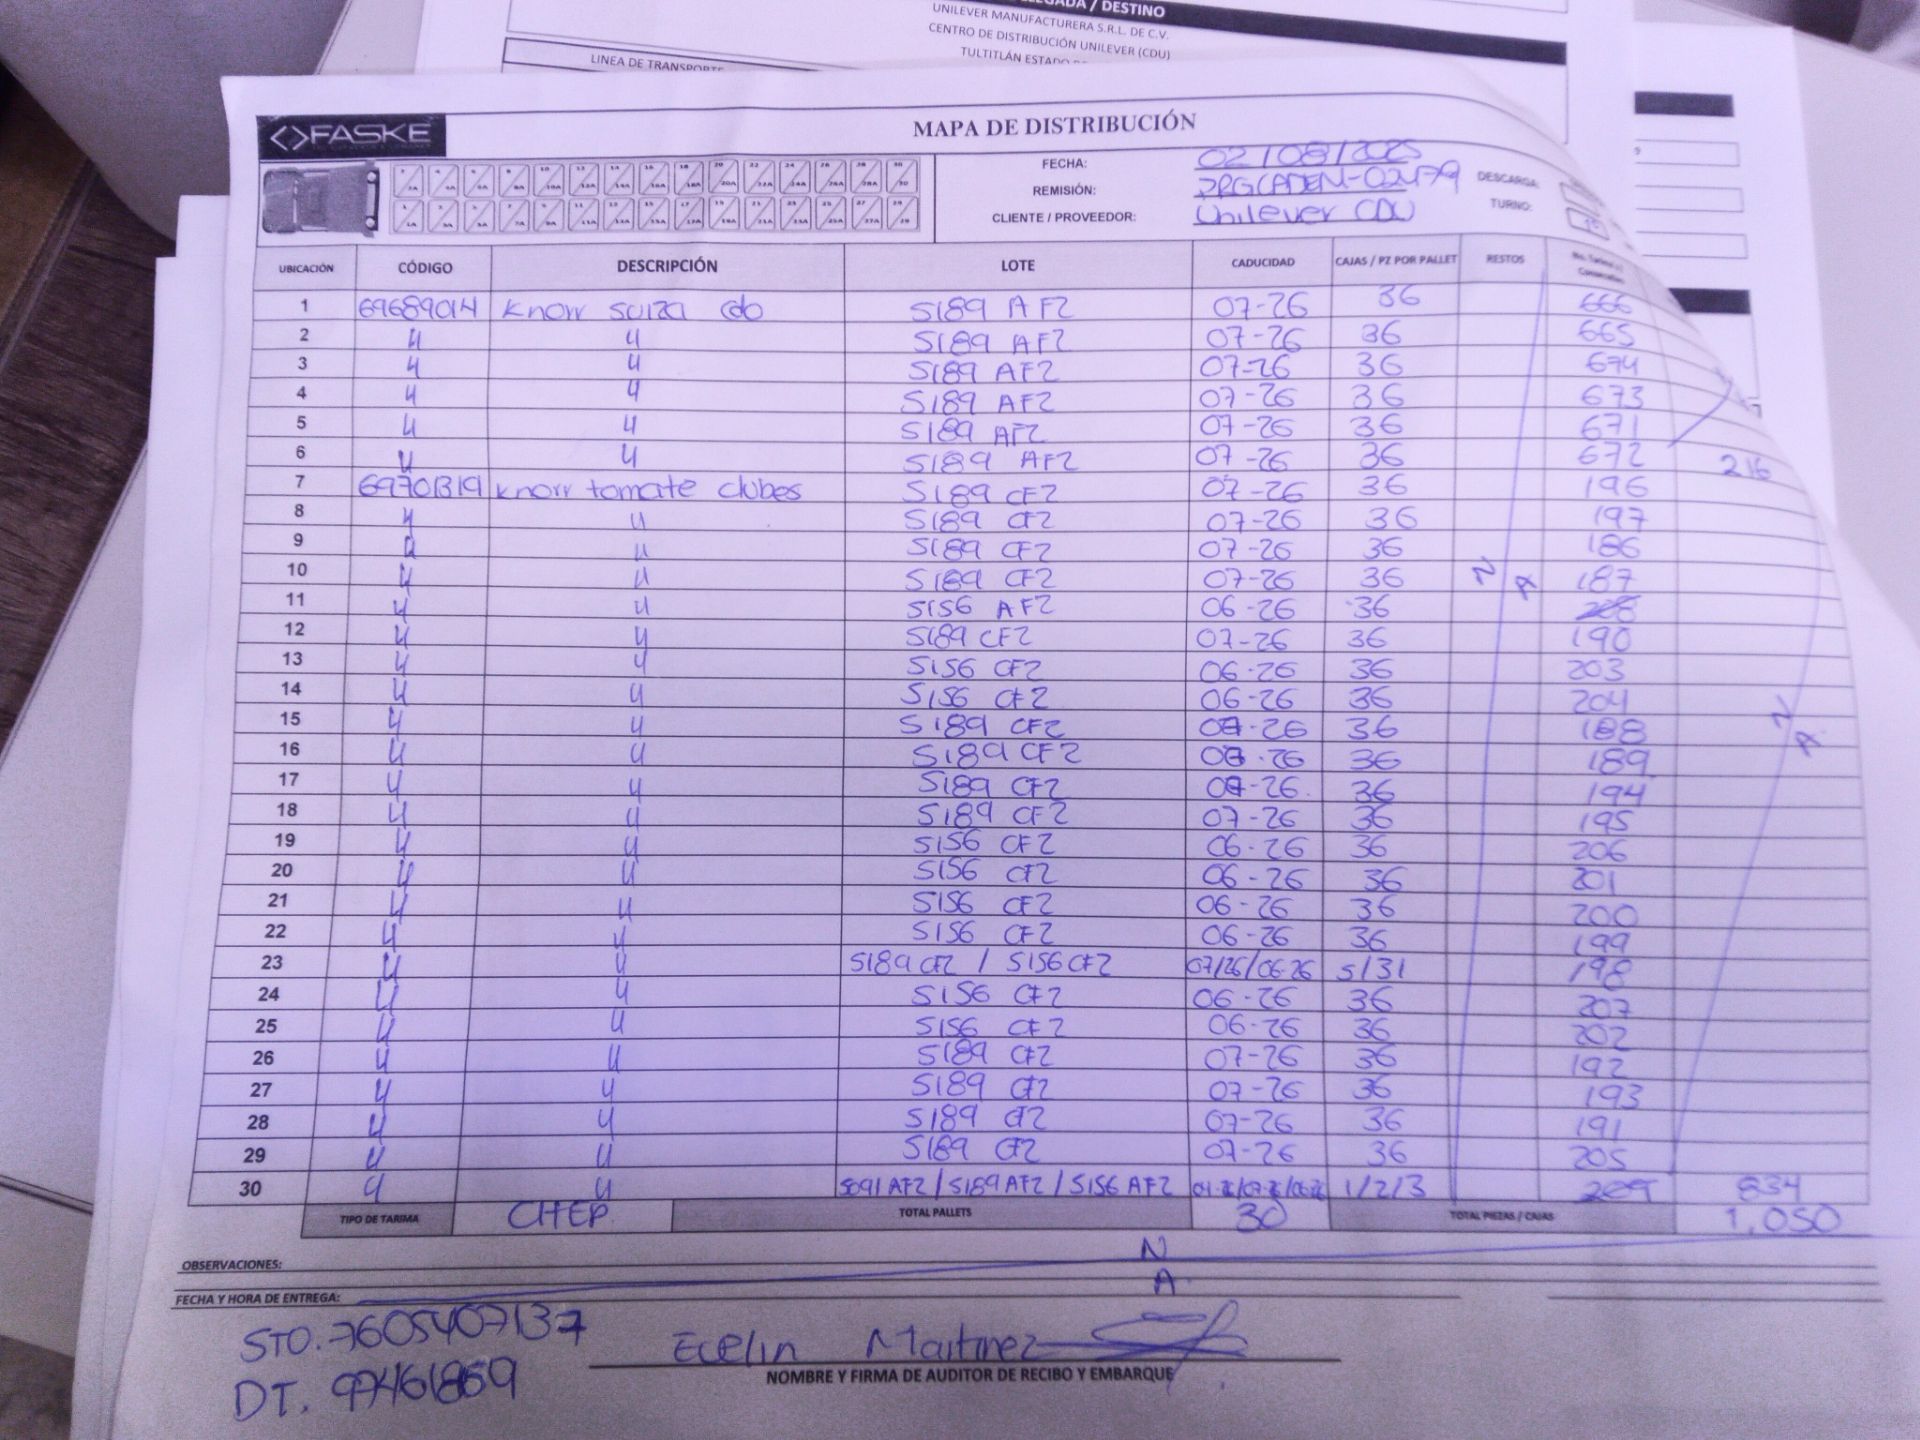 LLEGADA / DESTINO
UNILEVER MANUFACTURERA S.R.L. DE C.V.
CENTRO DE DISTRIBUCIÓN UNILEVER (CDU)
TULTITLÁN ESTADO
LINEA DE TRANSPORTE
<>FASKE
MAPA DE DISTRIBUCIÓN
FECHA: 02/08/2025
REMISIÓN: DESCARGA:
CLIENTE / PROVEEDOR: Unilever CDU TURNO: 1º
UBICACIÓN CÓDIGO DESCRIPCIÓN LOTE CADUCIDAD CAJAS / PZ POR PALLET RESTOS
1 69689014 Knorr suiza cdo S189 AF2 07-26 36 666
2 " " S189 AF2 07-26 36 665
3 " " S189 AF2 07-26 36 674
4 " " S189 AF2 07-26 36 673
5 " " S189 AF2 07-26 36 671
6 " " S189 AF2 07-26 36 672 216
7 69701319 Knorr tomate clubes S189 CF2 07-26 36 196
8 " " S189 CF2 07-26 36 197
9 " " S189 CF2 07-26 36 186
10 " " S189 CF2 07-26 36 N A 187
11 " " S156 AF2 06-26 36 208
12 " " S189 CF2 07-26 36 190
13 " " S156 CF2 06-26 36 203
14 " " S156 CF2 06-26 36 204
15 " " S189 CF2 07-26 36 188 N
16 " " S189 CF2 07-26 36 189 A
17 " " S189 CF2 07-26 36 194
18 " " S189 CF2 07-26 36 195
19 " " S156 CF2 06-26 36 206
20 " " S156 CF2 06-26 36 201
21 " " S156 CF2 06-26 36 200
22 " " S156 CF2 06-26 36 199
23 " " S189 CF2 / S156 CF2 07/26/06-26 5/31 198
24 " " S156 CF2 06-26 36 207
25 " " S156 CF2 06-26 36 202
26 " " S189 CF2 07-26 36 192
27 " " S189 CF2 07-26 36 193
28 " " S189 CF2 07-26 36 191
29 " " S189 CF2 07-26 36 205
30 " " S091 AF2 / S189 AF2 / S156 AF2 1/2/3 209 834
TIPO DE TARIMA CHEP TOTAL PALLETS 30 TOTAL PIEZAS / CAJAS 1,050
OBSERVACIONES: N
A
FECHA Y HORA DE ENTREGA:
STO. 7605407137
Ecelin Martinez
NOMBRE Y FIRMA DE AUDITOR DE RECIBO Y EMBARQUE
DT. 97461869